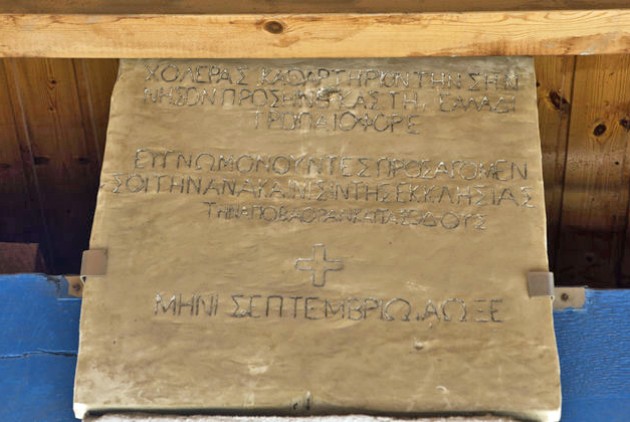 ΧΟΛΕΡΑΣ ΚΑΘΑΡΤΗΡΙΟΝ ΤΗΝ ΣΗΝ
ΝΗΣΟΝ ΠΡΟΣΕΝΕΓΚΑΣ ΤΗ ΕΛΛΑΔΙ
ΤΡΟΠΑΙΟΦΟΡΕ
ΕΥΓΝΩΜΟΝΟΥΝΤΕΣ ΠΡΟΣΑΓΟΜΕΝ
ΣΟΙ ΤΗΝ ΑΝΑΚΑΙΝΕΣΙΝ ΤΗΣ ΕΚΚΛΗΣΙΑΣ
ΤΗΝ ΑΠΟ ΒΑΘΡΑΝ
✠
ΜΗΝΙ ΣΕΠΤΕΜΒΡΙΩ ΑΩΞΕ